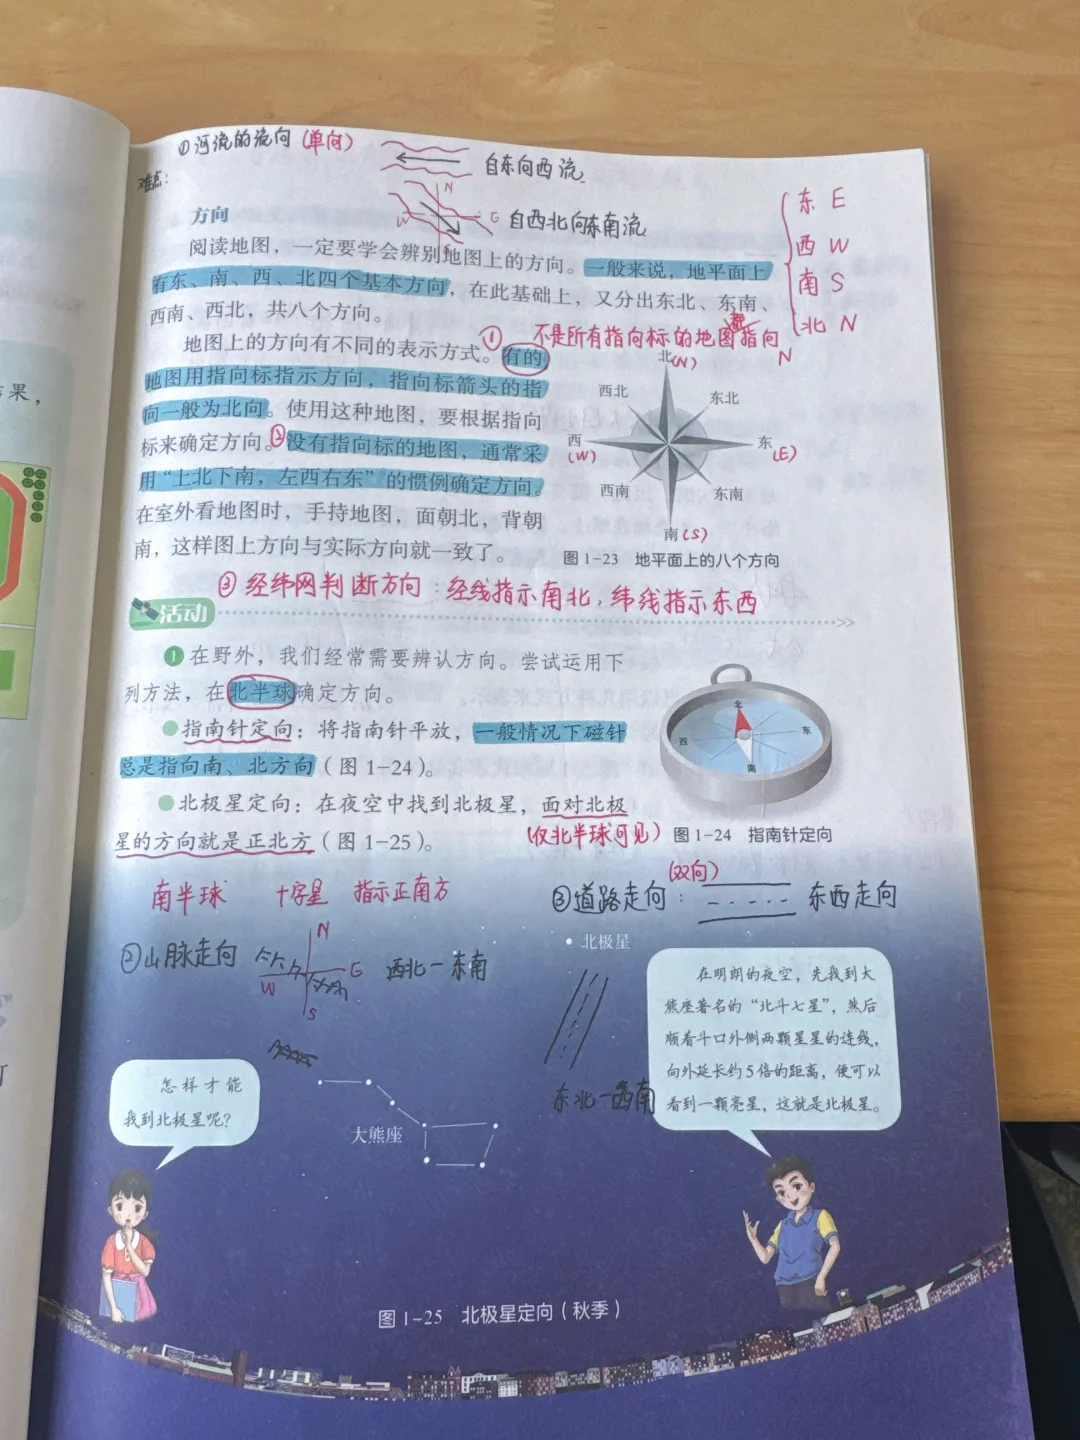 ①河流的流向(单向)
自东向西流
难点:
N
W
E
S
自西北向东南流
东 E
西 W
南 S
北 N
方向
阅读地图，一定要学会辨别地图上的方向。一般来说，地平面上
有东、南、西、北四个基本方向，在此基础上，又分出东北、东南、
西南、西北，共八个方向。
① 不是所有指向标的地图都指向
N
地图上的方向有不同的表示方式。有的
地图用指向标指示方向，指向标箭头的指
向一般为北向。使用这种地图，要根据指向
标来确定方向。②没有指向标的地图，通常采
用“上北下南，左西右东”的惯例确定方向。
在室外看地图时，手持地图，面朝北，背朝
南，这样图上方向与实际方向就一致了。
北(N)
西北
东北
西
(W)
东
(E)
西南
东南
南(S)
图1-23 地平面上的八个方向
③经纬网判断方向:经线指示南北,纬线指示东西
活动
1 在野外，我们经常需要辨认方向。尝试运用下
列方法，在北半球确定方向。
●指南针定向：将指南针平放，一般情况下磁针
总是指向南、北方向（图1-24）。
●北极星定向：在夜空中找到北极星，面对北极
星的方向就是正北方（图1-25）。
北
西
东
南
(仅北半球可见)
图1-24 指南针定向
南半球 十字星 指示正南方
(双向)
③道路走向: 东西走向
②山脉走向
N
W
E
S
西北一东南
北极星
东北一西南
在明朗的夜空，先找到大
熊座著名的“北斗七星”，然后
顺着斗口外侧两颗星星的连线，
向外延长约5倍的距离，便可以
看到一颗亮星，这就是北极星。
怎样才能
我到北极星呢？
大熊座
图1-25 北极星定向（秋季）
果，